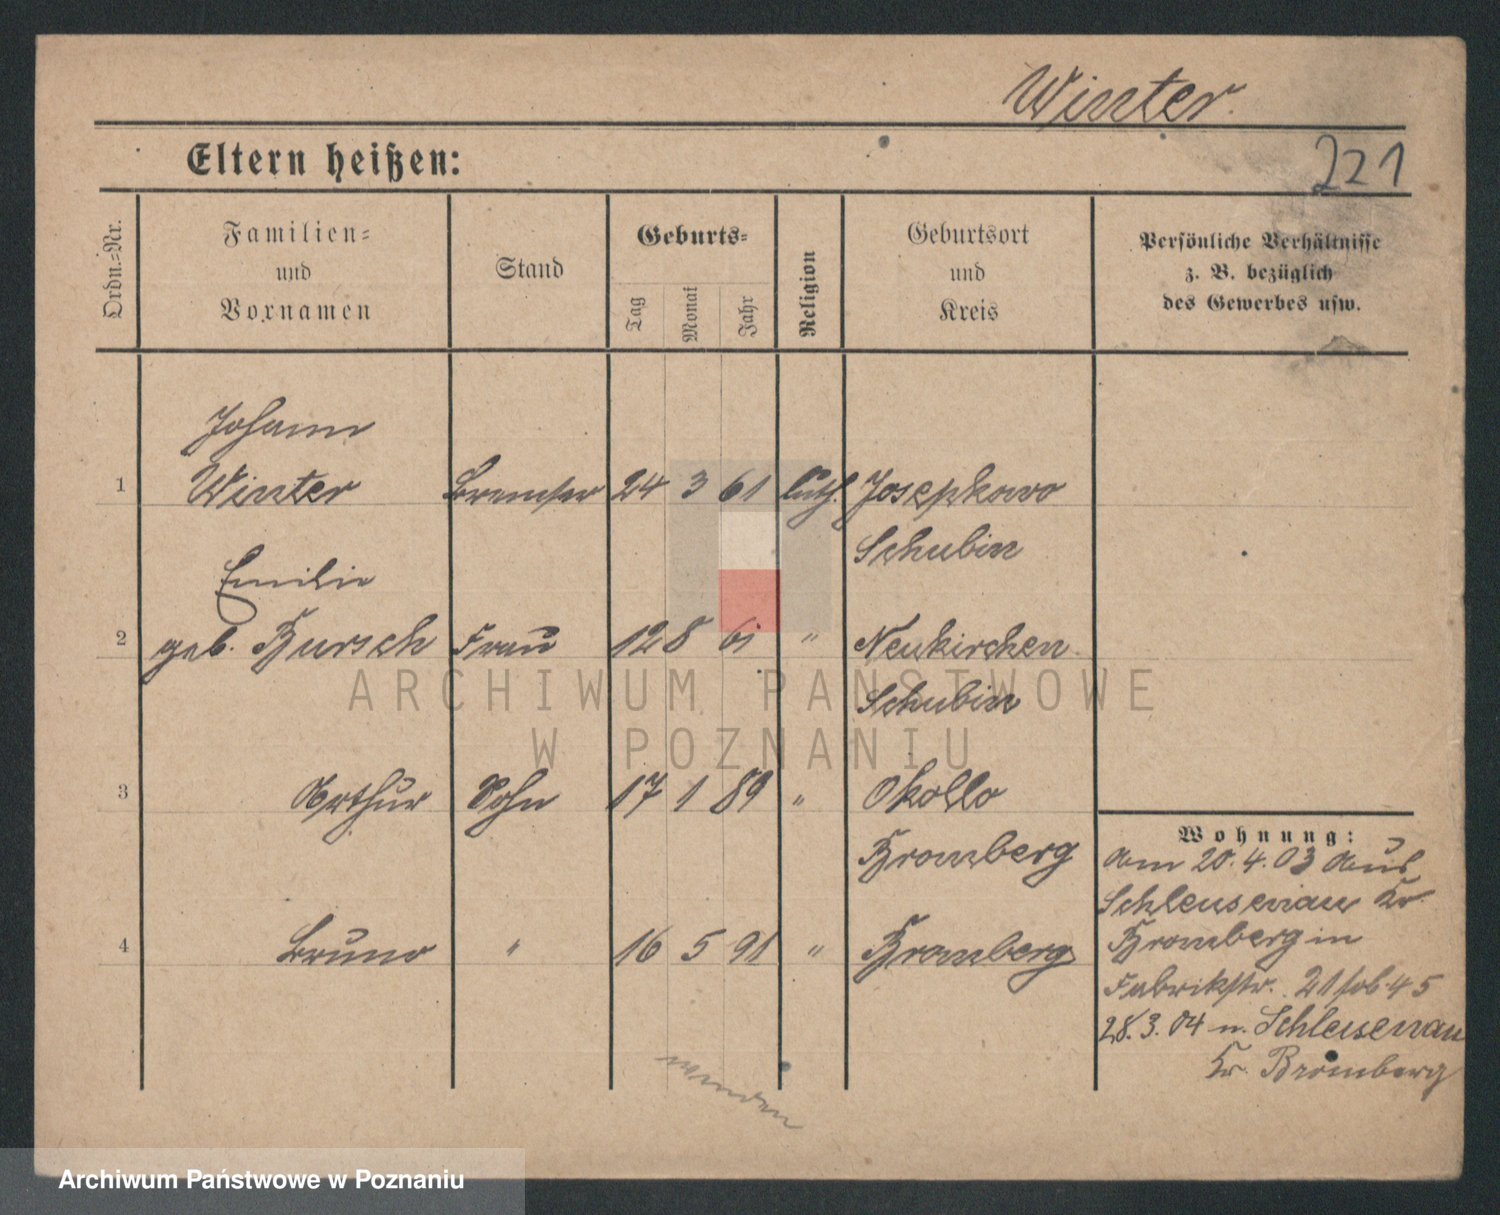 Winter.
Eltern heißen:
221
Ordn.-Nr.
Familien-
und
Vornamen
Stand
Geburts-
Tag
Monat
Jahr
Religion
Geburtsort
und
Kreis
Persönliche Verhältnisse
z. B. bezüglich
des Gewerbes usw.
Johann
1 Winter Bremser 24 3 61 luth. Josephkowo
Schubin
Emilie
2 geb. Bursch Frau 12 8 61 " Neukirchen
Schubin
ARCHIWUM PAŃSTWOWE
W POZNANIU
3 Arthur Sohn 17 1 89 " Okollo
Bromberg
Wohnung:
Am 20. 4. 03 aus
Schleusenau Kr.
4 Bruno " 16 5 91 " Bromberg
Bromberg in
Fabrikstr. 21 45
28. 3. 04 n. Schleusenau
Kr. Bromberg
wenden
Archiwum Państwowe w Poznaniu